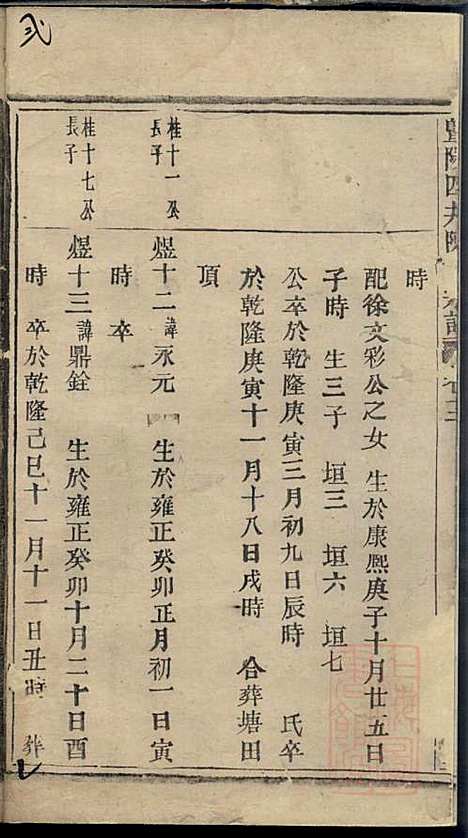 弍
暨陽
時
配徐文彩公之女 生於康熙庚子十月廿五日
子時 生三子 垣三 垣六 垣七
公卒於乾隆庚寅三月初九日辰時 氏卒
於乾隆庚寅十一月十八日戌時 合葬塘田
頂
桂十一公
長子
煜十二 諱永元 生於雍正癸卯正月初一日寅
時 卒
桂十七公
長子
煜十三 諱鼎銓 生於雍正癸卯十月二十日酉
時 卒於乾隆己巳十一月十一日丑時 葬